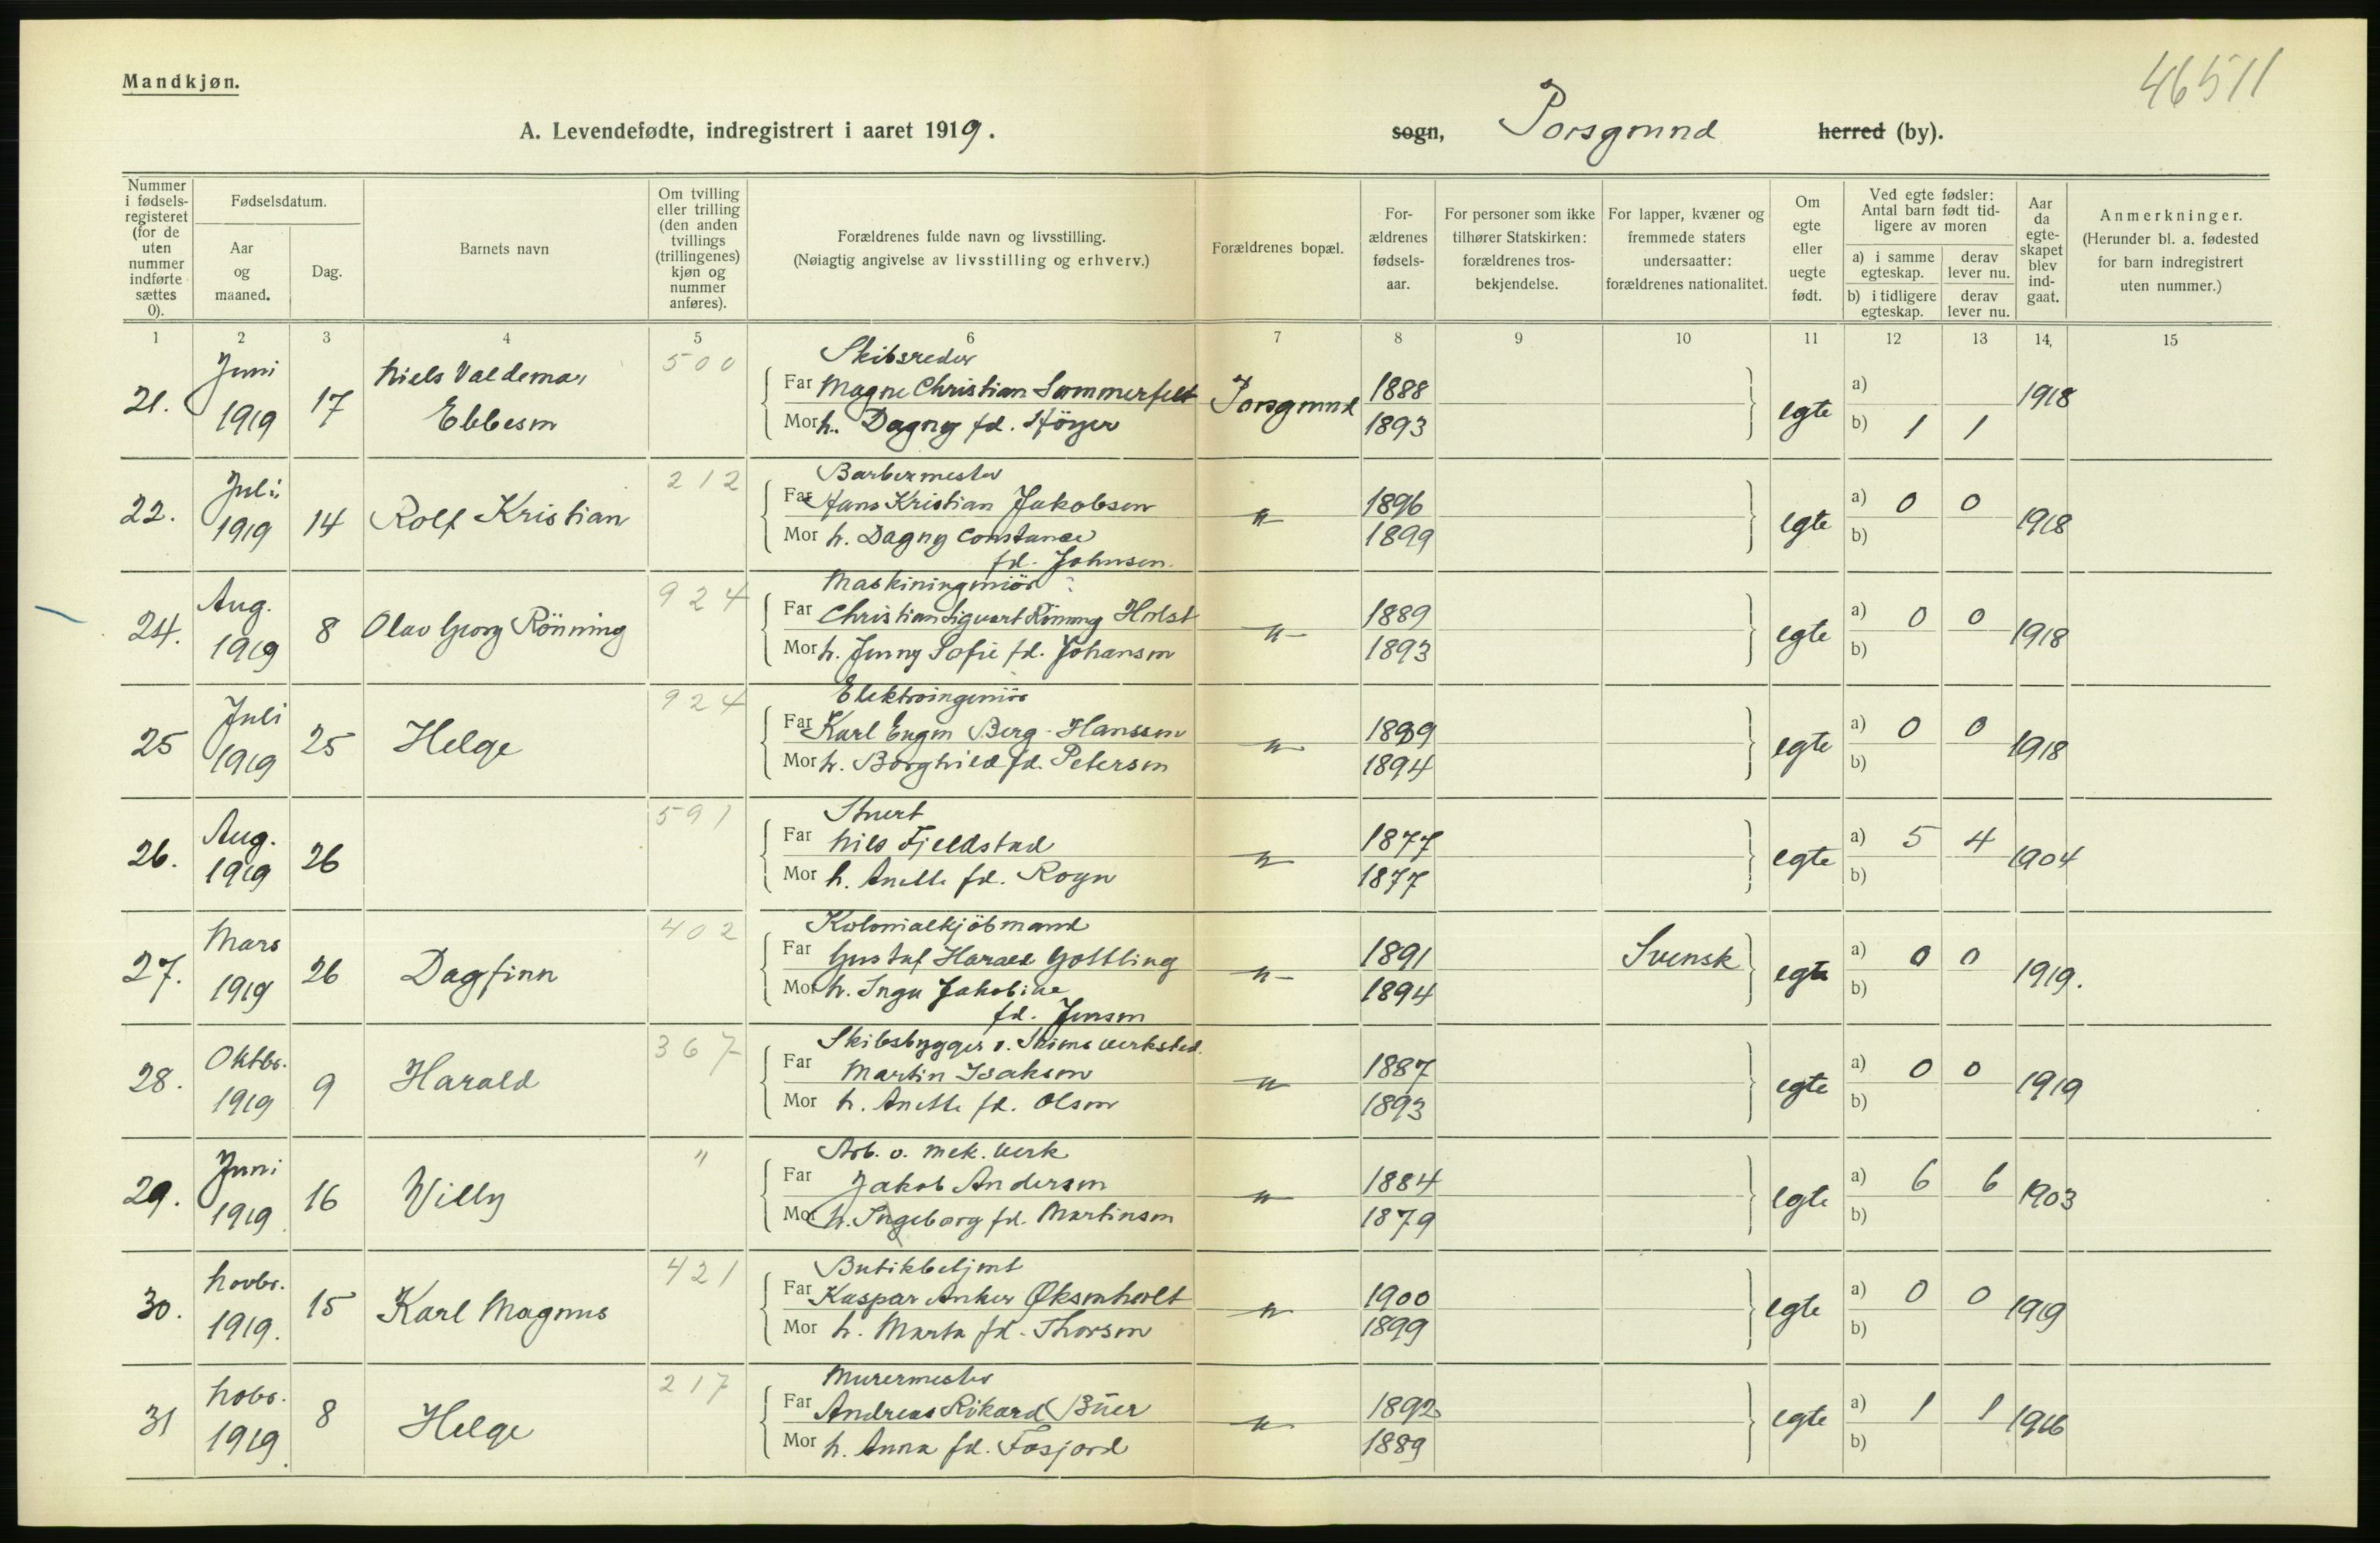 46511
Mandkjøn.
A. Levendefødte, indregistrert i aaret 1919.
sogn, Porsgrund herred (by).
Nummer i fødselsregisteret (for de uten nummer indførte sættes 0).
Fødselsdatum.
Aar og maaned.
Dag.
Barnets navn
Om tvilling eller trilling (den anden tvillings (trillingenes) kjøn og nummer anføres).
Forældrenes fulde navn og livsstilling.
(Nøiagtig angivelse av livsstilling og erhverv.)
Forældrenes bopæl.
Forældrenes fødselsaar.
For personer som ikke tilhører Statskirken: forældrenes trosbekjendelse.
For lapper, kvæner og fremmede staters undersaatter: forældrenes nationalitet.
Om egte eller uegte født.
Ved egte fødsler: Antal barn født tidligere av moren
a) i samme egteskap.
derav lever nu.
b) i tidligere egteskap.
derav lever nu.
Aar da egteskapet blev indgaat.
Anmerkninger.
(Herunder bl. a. fødested for barn indregistrert uten nummer.)
1 2 3 4 5 6 7 8 9 10 11 12 13 14, 15
21. Juni 1919 17 Niels Valdemar Ebbesen 500
Skibsreder
Far Magne Christian Sommerfelt Porsgrund 1888 egte a) 1918
Mor h. Dagny fd. Høyer 1893 b) 1 1
22. Juli 1919 14 Rolf Kristian 212
Barbermester
Far Hans Kristian Jakobsen " 1896 egte a) 0 0 1918
Mor h. Dagny Constance fd. Johnsen. 1899 b)
24. Aug. 1919 8 Olav Georg Rönning 924
Maskiningeniör
Far Christian Sigvart Rönning Holst " 1889 egte a) 0 0 1918
Mor h. Jenny Sofie fd. Johansen 1893 b)
25 Juli 1919 25 Helge 924
Elektroingeniör
Far Karl Eugen Berg-Hanssen " 1889 egte a) 0 0 1918
Mor h. Borghild fd. Petersen 1894 b)
26. Aug. 1919 26 591
Stuert
Far Nils Fjeldstad " 1877 egte a) 5 4 1904
Mor h. Anette fd. Rogn 1877 b)
27. Mars 1919 26 Dagfinn 402
Kolonialkjöbmand
Far Gustaf Harald Gottling " 1891 Svensk egte a) 0 0 1919.
Mor h. Inga Jakobine fd. Jensen 1894 b)
28. Oktbr. 1919 9 Harald 367
Skibsbygger v. verksted.
Far Martin Isaksen " 1887 egte a) 0 0 1919
Mor h. Anette fd. Olsen 1893 b)
29. Juni 1919 16 Willy "
Arb. v. mek. verk
Far Jakob Andersen " 1884 egte a) 6 6 1903
Mor h. Ingeborg fd. Martinsen 1879 b)
30. Novbr. 1919. 15 Karl Magnus 421
Butikbetjent
Far Kaspar Anker Øksenholt " 1900 egte a) 0 0 1919
Mor h. Marta fd. Thorsen 1899 b)
31 Nobr. 1919. 8 Helge 217
Murermester
Far Andreas Rikard Büer " 1892 egte a) 1 1 1916
Mor h. Anna fd. Fosjord 1889 b)